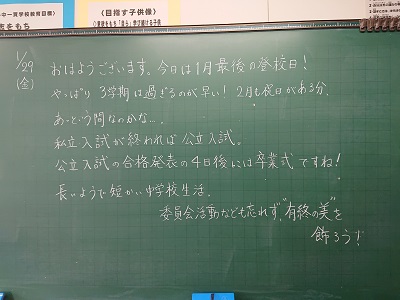 小中一貫学校教育目標】
志をもち
〈目指す子供像〉
1/29
(金)
おはようございます。今日は1月最後の登校日!
やっぱり 3学期は過ぎるのが早い! 2月も祝日がある分、
あっという間なのかな…
私立入試が終われば公立入試。
公立入試の合格発表の4日後には卒業式ですね!
長いようで短かい中学校生活。
委員会活動なども忘れず、"有終の美"を
飾ろう!